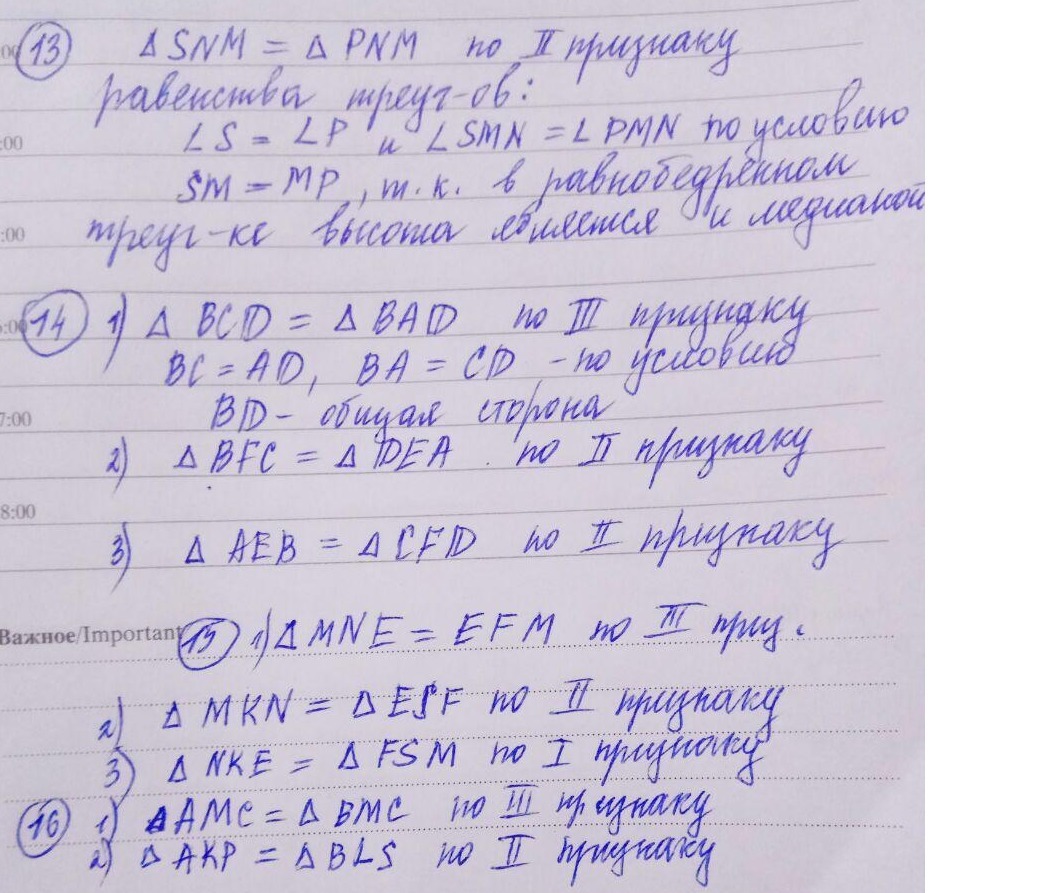 :00 13 Δ SNM = Δ PNM по II признаку
равенства треуг-ов:
:00 ∠S = ∠P и ∠SMN = ∠PMN по условию
SM = MP, т.к. в равнобедренном
:00 треуг-ке высота является и медианой
6:00 14 1) Δ BCD = Δ BAD по III признаку
BC = AD, BA = CD - по условию
7:00 BD - общая сторона
2) Δ BFC = Δ DEA по II признаку
8:00
3) Δ AEB = Δ CFD по II признаку
Важное/Important 15 1) Δ MNE = EFM по III приз.
2) Δ MKN = Δ ESF по II признаку
3) Δ NKE = Δ FSM по I признаку
16 1) Δ AMC = Δ BMC по III признаку
2) Δ AKP = Δ BLS по II признаку